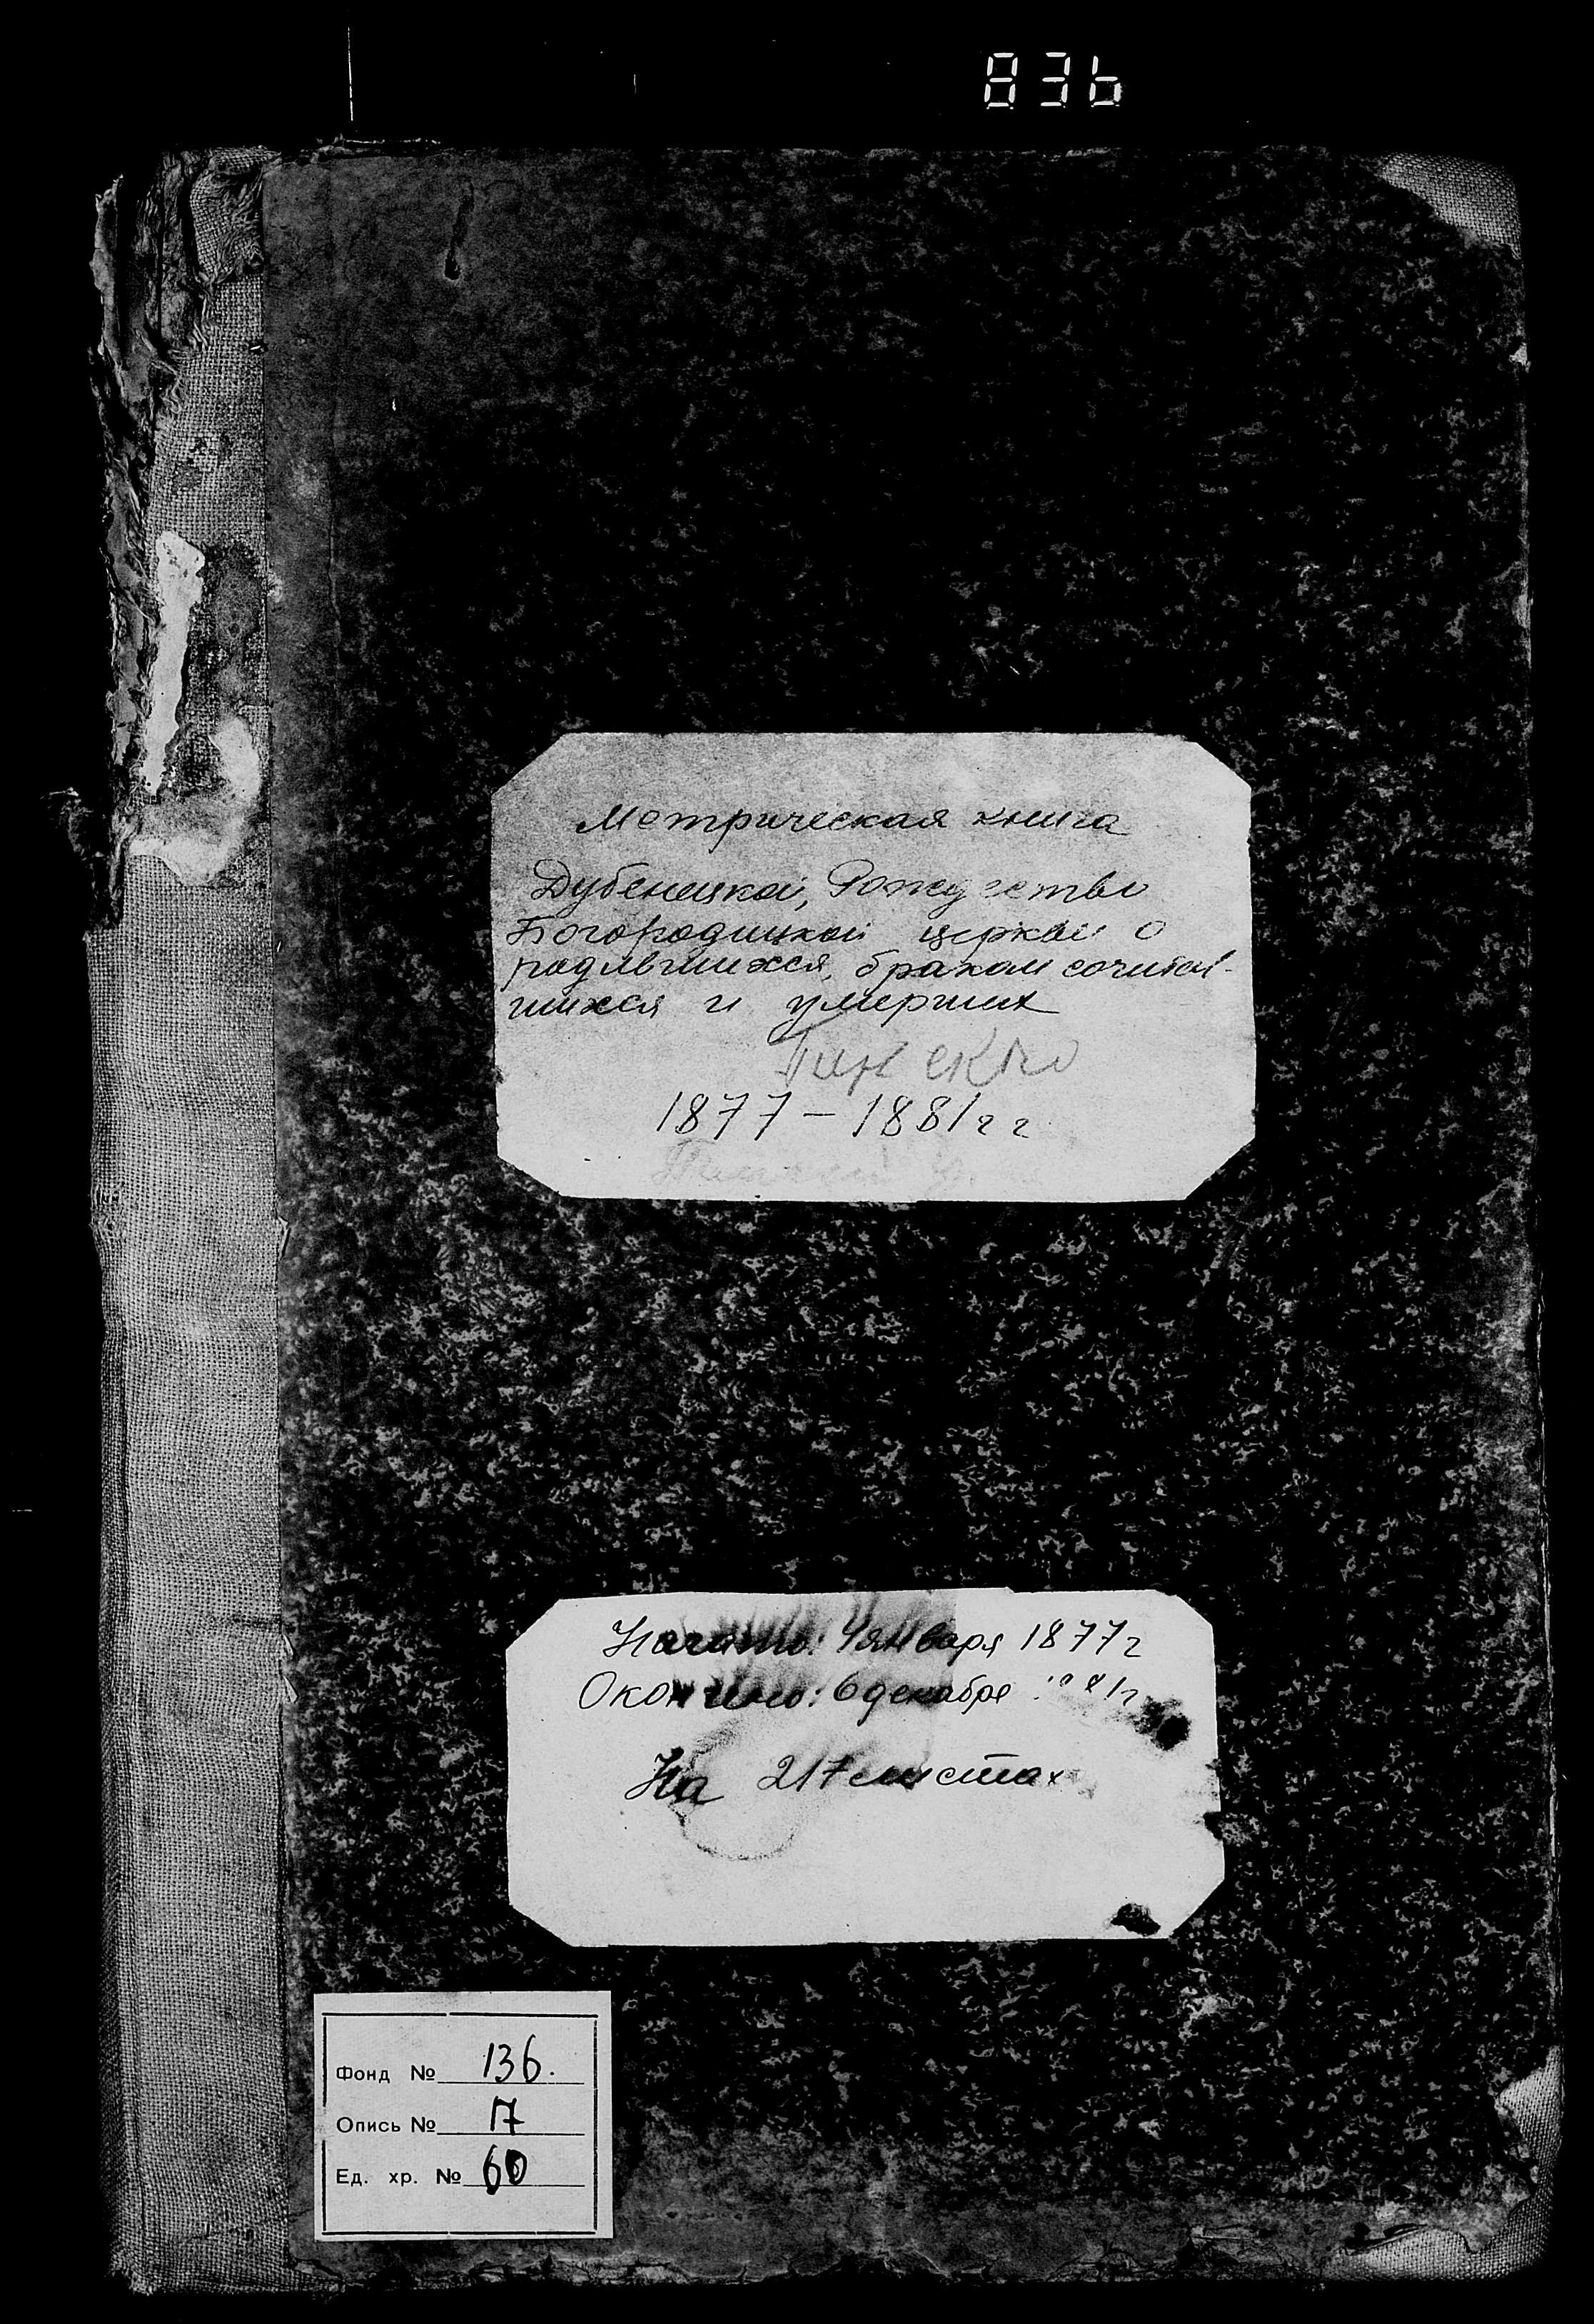 836
Метрическая книга
Дубенецкой, Рождество
Богородицкой церкви о
родившихся, браком сочитав-
шихся и умерших
1877 – 1881 г г
Начато: 4 января 1877 г
Окончено: 6 декабря
На 217 листах
Фонд № 136.
Опись № 17
Ед. хр. № 60